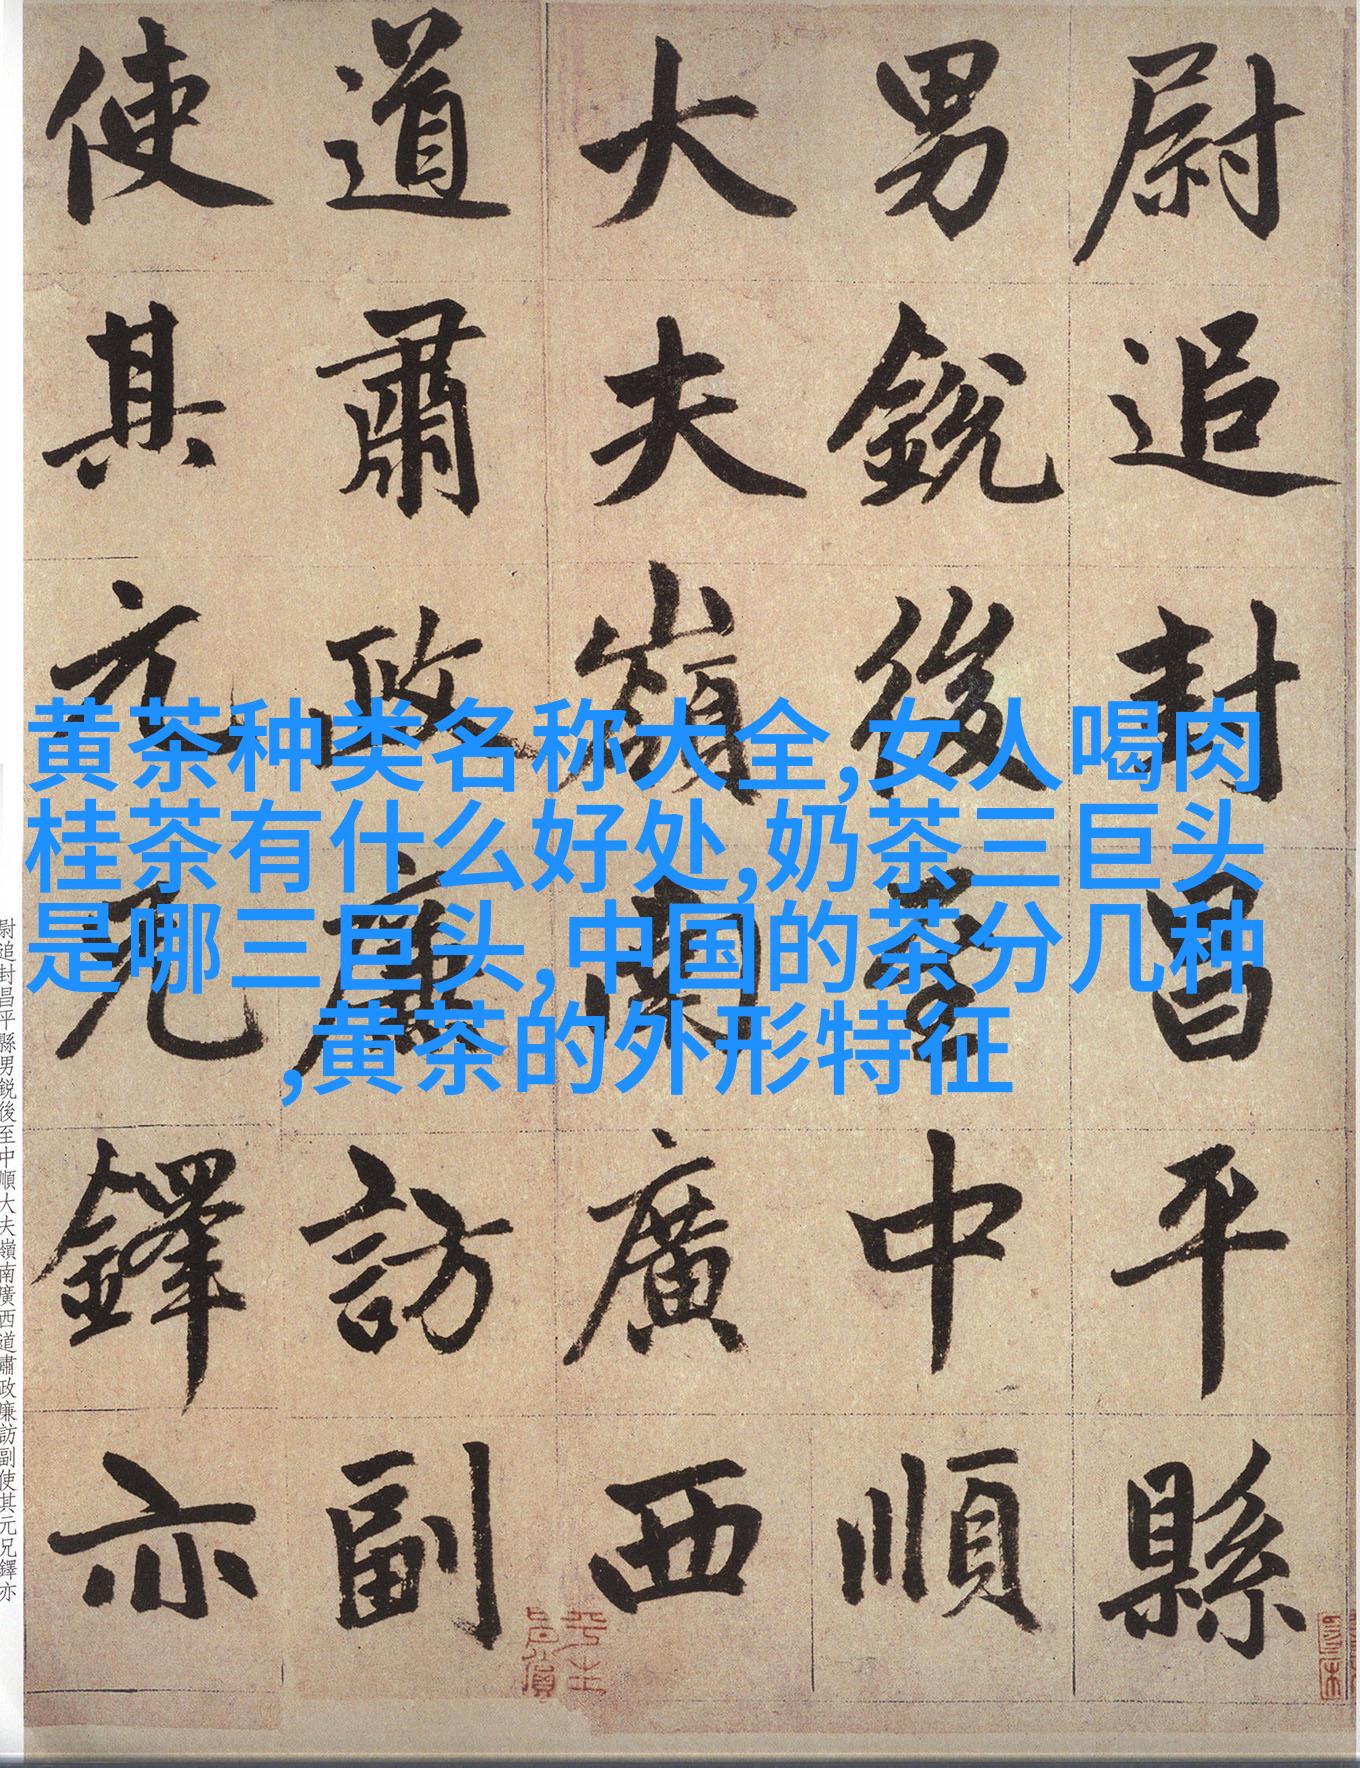 尉追封昌平縣
男銳後至中順
大夫嶺南廣西
道肅政廉訪副
使其元兄鐸亦
黄茶种类名称大全,女人喝肉
桂茶有什么好处,奶茶三巨头
是哪三巨头,中国的茶分几种
,黄茶的外形特征
尉追封昌平縣男銳後至中順大夫嶺南廣西道肅政廉訪副使其元兄鐸亦